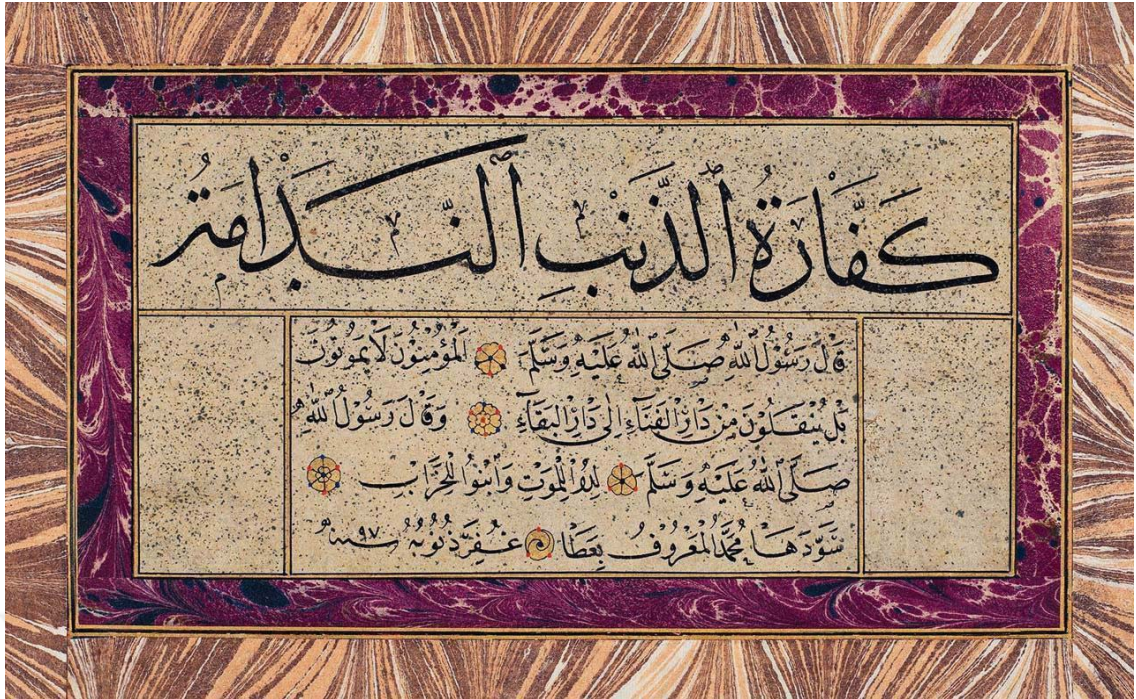 كَفَّارَةُ الذَّنْبِ النَّدَامَةُ
قَالَ رَسُولُ اللّٰهِ صَلَّى اللّٰهُ عَلَيْهِ وَسَلَّمَ الْمُؤْمِنُونَ لَا يَمُوتُونَ
بَلْ يُنْقَلُونَ مِنْ دَارِ الْفَنَاءِ اِلَى دَارِ الْبَقَاءِ وَقَالَ رَسُولُ اللّٰهِ
صَلَّى اللّٰهُ عَلَيْهِ وَسَلَّمَ لِدُوا لِلْمَوْتِ وَابْنُوا لِلْخَرَابِ
سَوَّدَهَا مُحَمَّدُ الْمَعْرُوفُ بِعَطَا غُفِرَ ذُنُوبُهُ سنة ٩٧